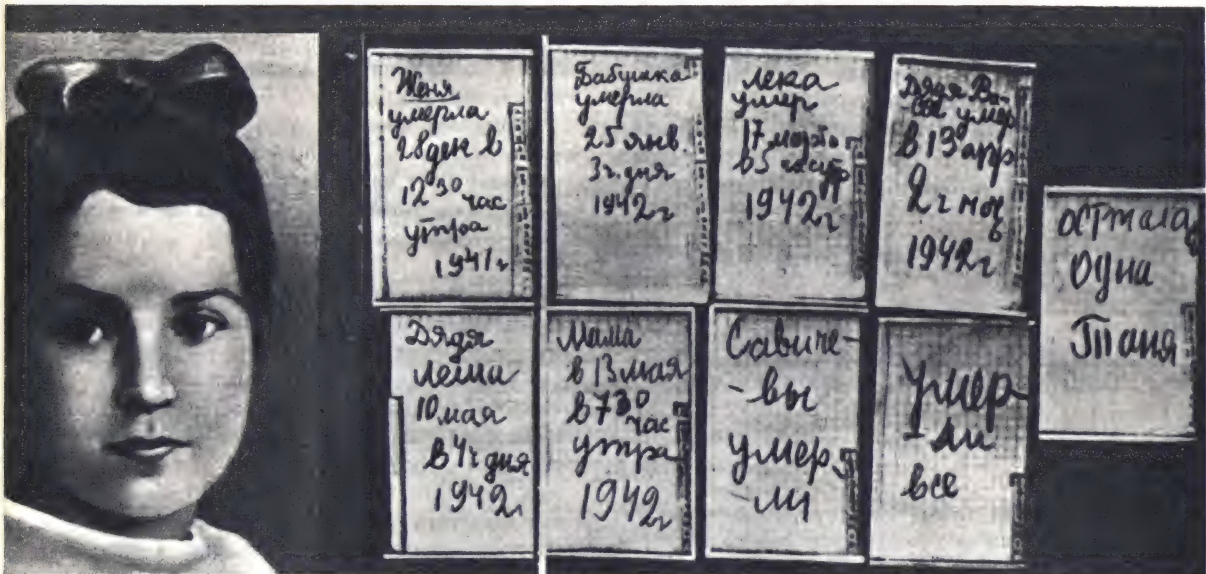 Женя
умерла
28 ден в
12 30 час
утра
1941 г
Бабушка
умерла
25 янв.
3 ч. дня
1942 г
Лека
умер
17 марта
в 5 час утр
1942 г
Дядя Ва-
ся умер
в 13 апр
2 ч ноч
1942 г
Дядя
Леша
10 мая
в 4 ч дня
1942 г
Мама
в 13 мая
в 7 30 час
утра
1942 г
Савиче-
-вы
умер
-ли
Умер
-ли
все
Осталась
одна
Таня